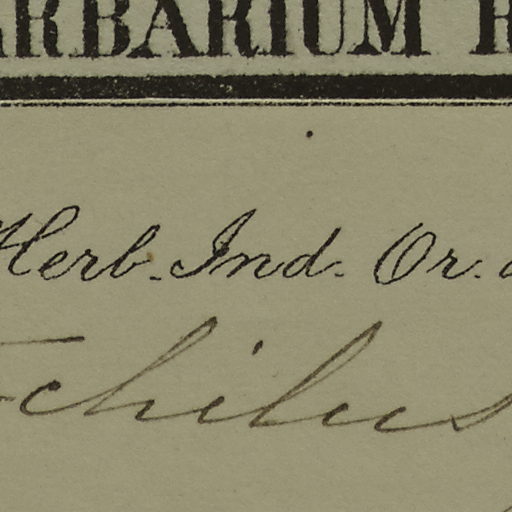 ERBARIUM
Herb. Ind. Or.
chilus